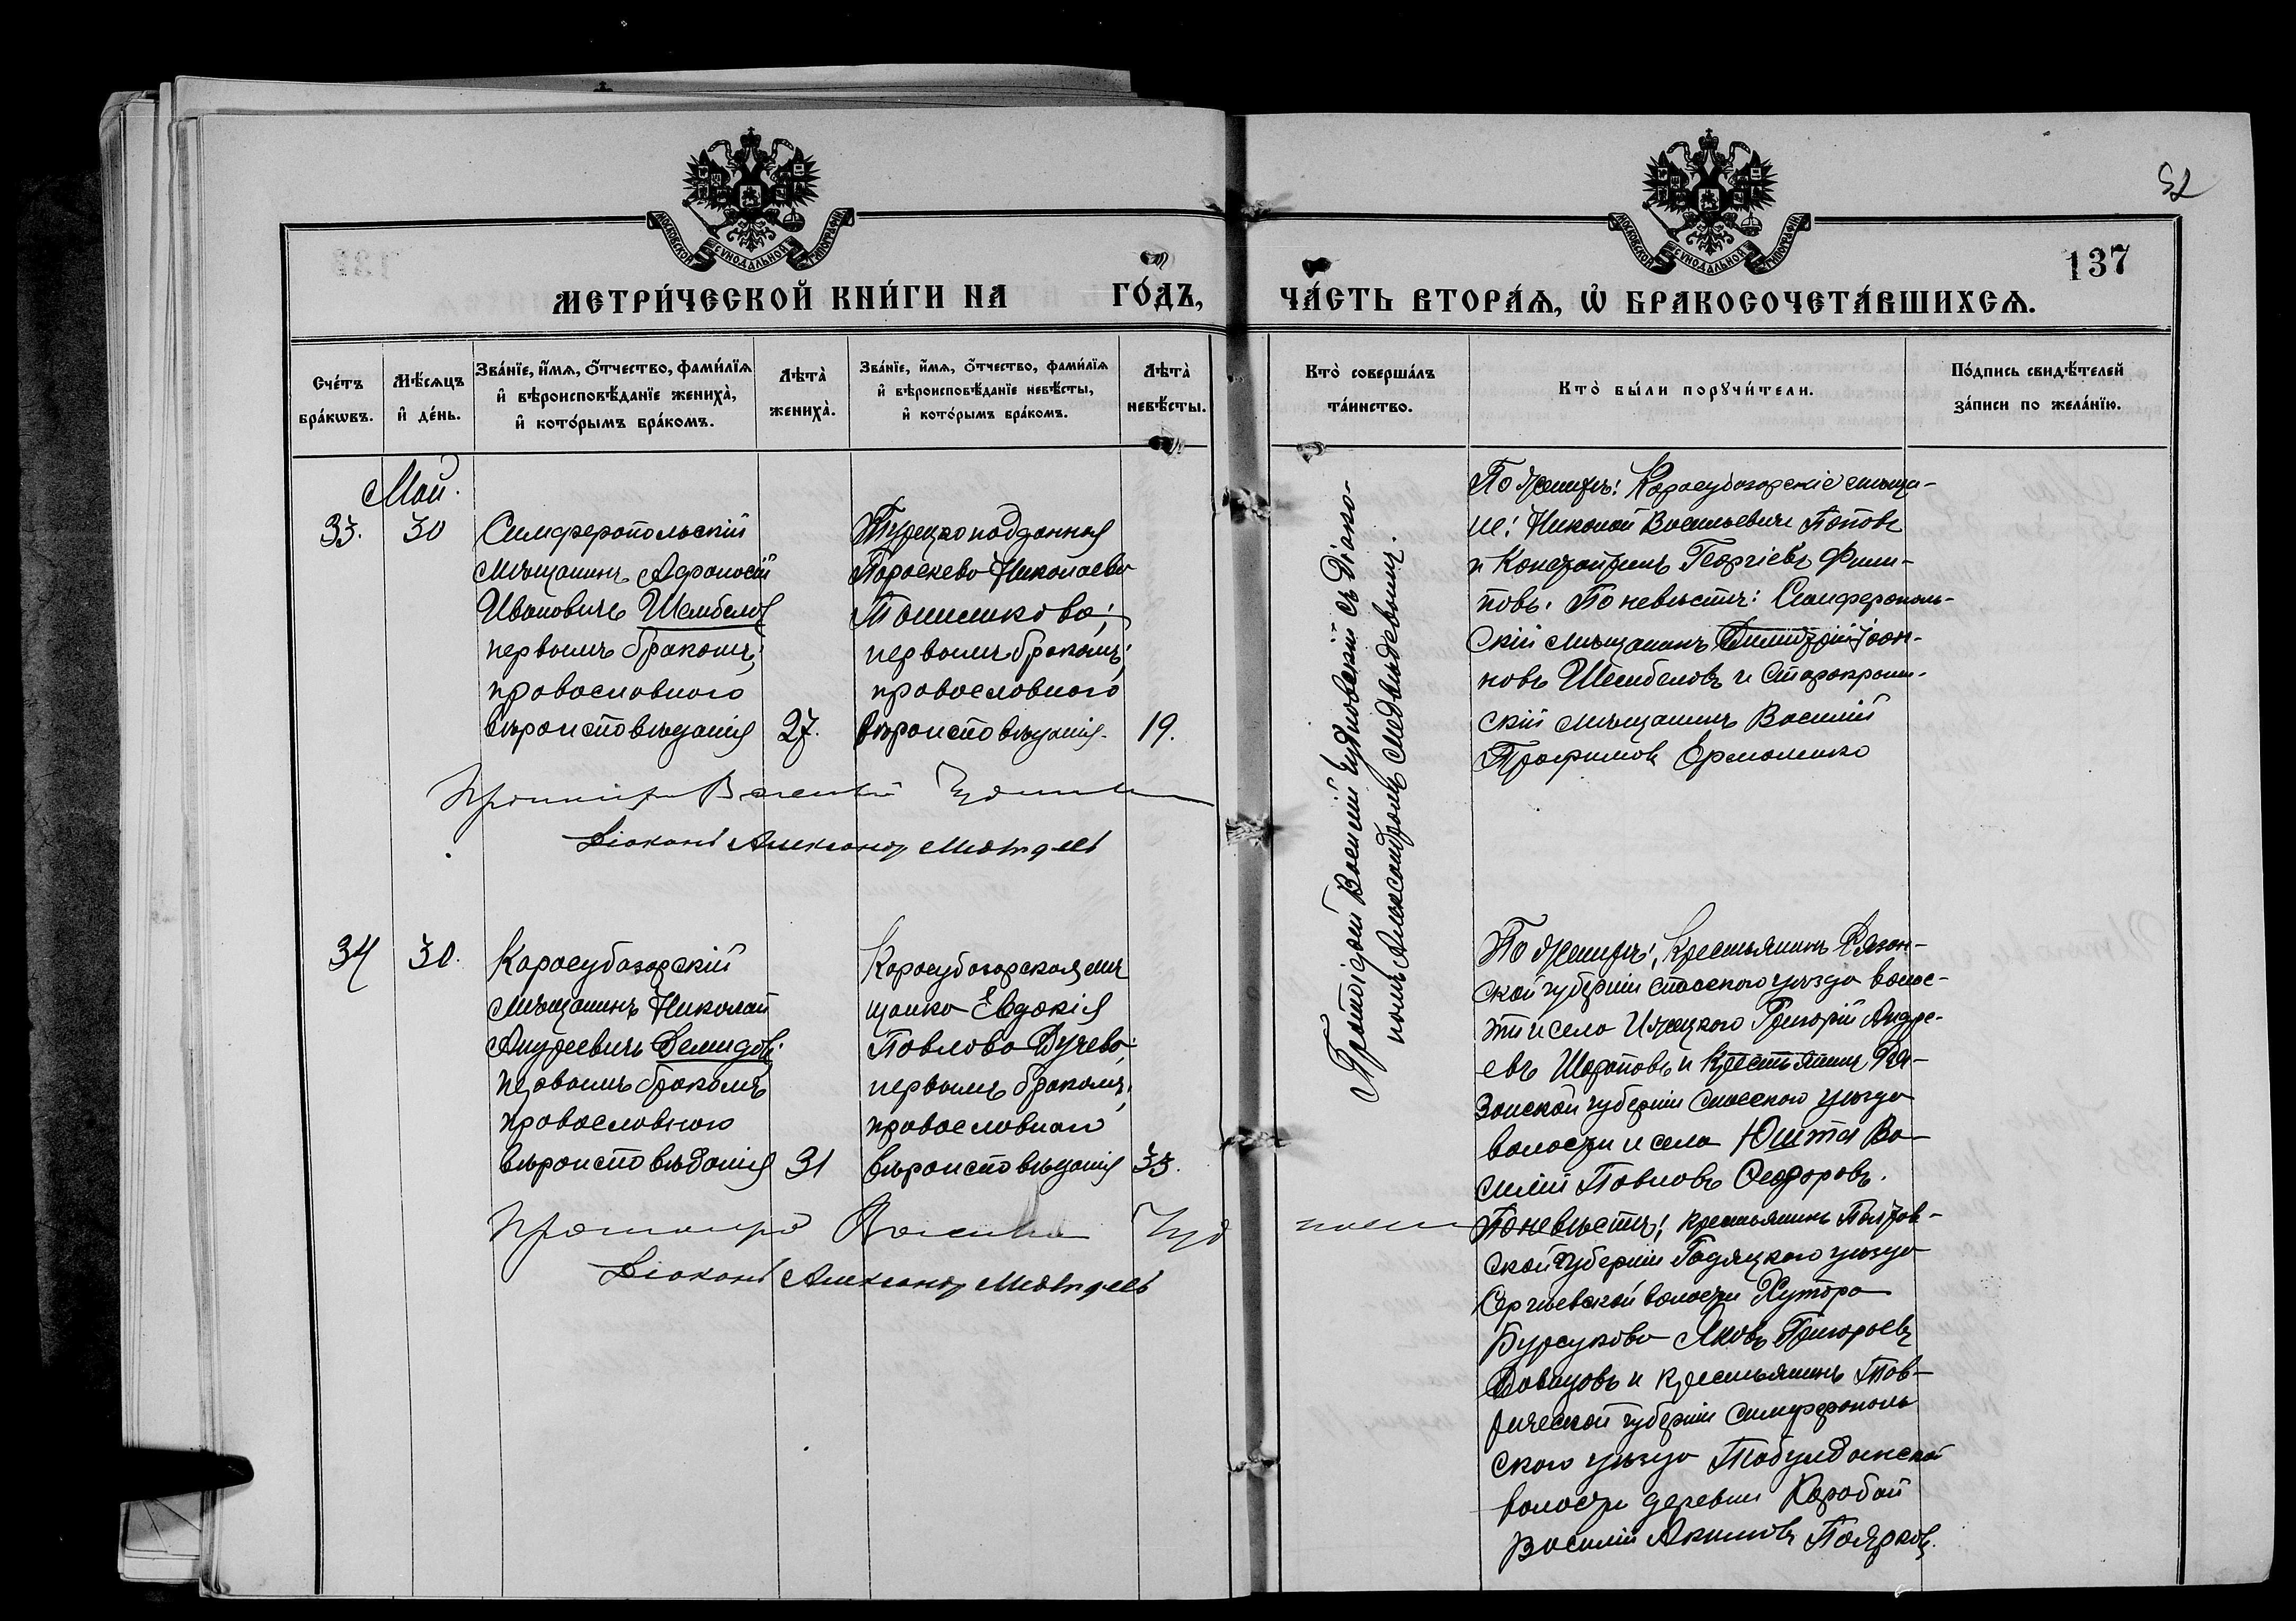 52
137
МОСКОВСКОЙ СѴНОДАЛЬНОЙ ТИПОГРАФІИ
МОСКОВСКОЙ СѴНОДАЛЬНОЙ ТИПОГРАФІИ
МЕТРИ́ЧЕСКОЙ КНИ́ГИ НА ГО́ДЪ,
ЧА́СТЬ ВТОРА́Ѧ, Ѡ҆ БРАКОСОЧЕТА́ВШИХСѦ.
Сче́тъ бра́кѡвъ.
Мѣ́сѧцъ и҆ де́нь.
Зва́нїе, и҆́мѧ, ѻ҆́тчество, фами́лїѧ
и҆ вѣроисповѣ́данїе жениха̀,
и҆ кото́рымъ бра́комъ.
Лѣта̀ жениха̀.
Зва́нїе, и҆́мѧ, ѻ҆́тчество, фами́лїѧ
и҆ вѣроисповѣ́данїе невѣ́сты,
и҆ кото́рымъ бра́комъ.
Лѣта̀ невѣ́сты.
Кто̀ соверша́лъ
та́инство.
Кто̀ бы́ли порꙋчи́тели.
По́дпись свидѣ́телей
за́писи по жела́нїю.
Май.
33.
30
Симферопольскій
мѣщанинъ Афанасій
Ивановичъ Шембелов
первымъ бракомъ;
православнаго
вѣроисповѣданія
27.
Турецкоподданная
Параскева Николаева
первымъ бракомъ;
православнаго
вѣроисповѣданія.
19.
Протоіерей Василій Чудновскій съ Діако-
номъ Александромъ Медвѣдевымъ.
По женихѣ: Карасубазарскіе мѣща-
не: Николай Васильевичъ Поповъ
и Константинъ Георгіевъ Фили-
повъ. По невѣстѣ: Симферополь-
скій мѣщанинъ Димитрій Іоан-
новъ Шембеловъ и Старокрым-
скій мѣщанинъ Василій
Трофимовъ Ермоленко
Протоіерей Василій
Діаконъ Александр Медведев
34
30.
Карасубазарскій
мѣщанинъ Николай
Андреевичъ Демидовъ;
первымъ бракомъ
православнаго
вѣроисповѣданія
31
Карасубазарская мѣ
щанка Евдокія
Павлова
первымъ бракомъ;
православнаго
вѣроисповѣданія
33.
По женихѣ: Крестьянинъ Рязан-
ской губерніи Спасскаго уѣзда волос-
ти и села Ижевскаго Григорій Андре-
евъ Шараповъ и крестьянинъ Ря-
занской губерніи Спасскаго уѣзда
волости и села Юшта Ва-
силій Павловъ Ѳеодоровъ.
По невѣстѣ: крестьянинъ Полтав-
ской губерніи Гадяцкаго уѣзда
Сергіевской волости Хутора
Бурсукова Яковъ Григорьевъ
и крестьянинъ Тав-
рической губерніи Симферополь
скаго уѣзда Табулдинской
волости деревни Карабай
Василій Акимовъ Поярковъ.
Протоіерей Василій
Діаконъ Александр Медведев